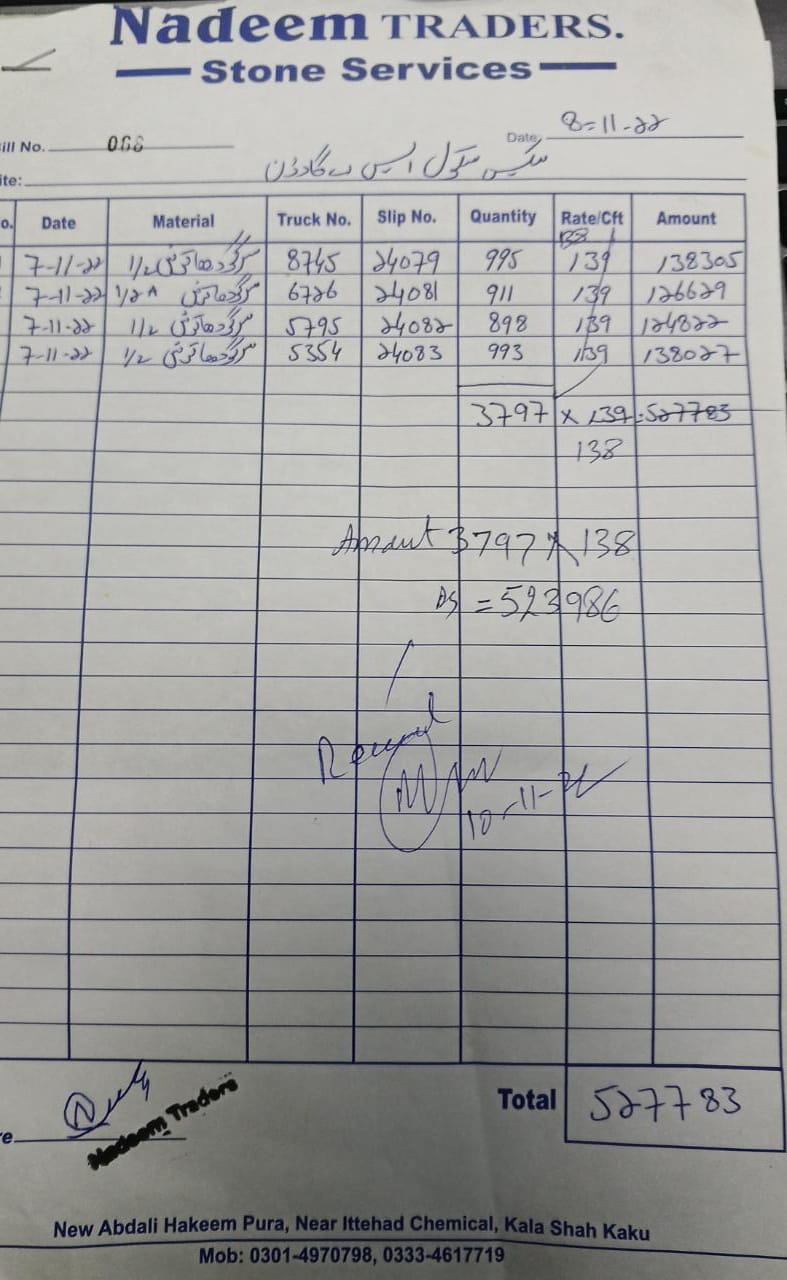 Nadeem TRADERS.
Stone Services
ill No. 068
Date, 8-11-22
ite:
o. Date Material Truck No. Slip No. Quantity Rate/Cft Amount
138
7-11-22 1/2 سرگودھا 8745 24079 995 139 138305
7-11-22 1/2 سرگودھا 6726 24081 911 139 126629
7-11-22 1/2 سرگودھا 5795 24082 898 139 124822
7-11-22 1/2 سرگودھا 5354 24083 993 139 138027
3797 x 139 = 527783
138
Amount 3797 x 138
= 523986
Received
10-11-22
Total 527783
Nadeem Traders
e
New Abdali Hakeem Pura, Near Ittehad Chemical, Kala Shah Kaku
Mob: 0301-4970798, 0333-4617719